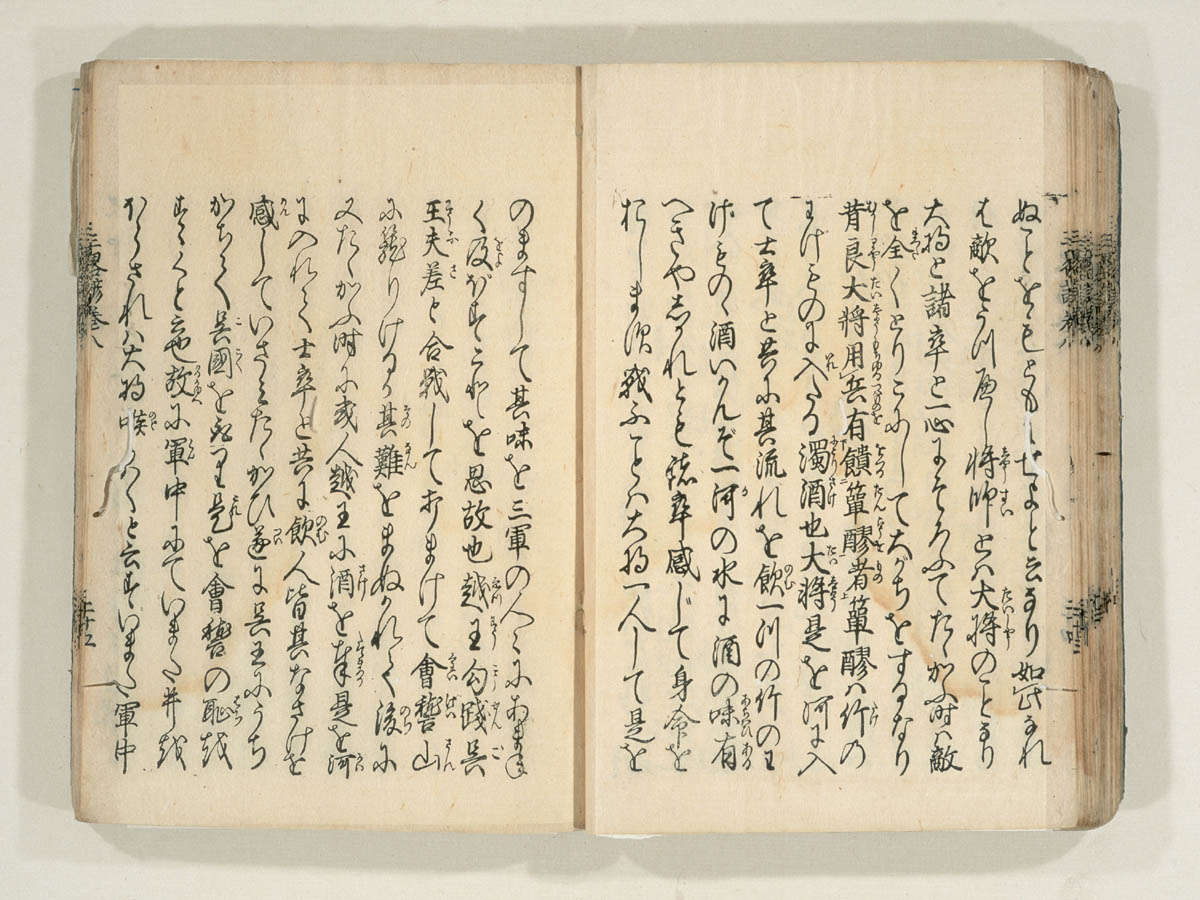 ぬことをもともにせよと云なり如此なれ
は敵をうつへし将帥とは大将のことなり
大将と諸卒と一心にそろふてたゝかふ時は敵
を全くとりこにして大がちをするなり
昔良大将用兵有饋簞醪者簞醪は竹の
わげものに入たる濁酒也大将是を河に入
て士卒と共に其流れを飲一川の竹のわ
げものゝ酒いかんぞ一河の水に酒の味有
へきやしかれとも諸卒感じて身命を
おしまず戦ふことは大将一人して是を
のますして其味を三軍の人々にあまね
く及ぼすこれを思故也越王勾践呉
王夫差と合戦して打まけて會稽山
に籠りけるか其難をまぬかれて後に
又たゝかふ時に或人越王に酒を奉是を河
に入れて士卒と共に飲人皆其なさけを
感していさみたゝかひ遂に呉王にうち
かちて呉國を取是を會稽の恥を
すゝくと云也故に軍中にていまた井を
ほらされは大将喉かはくと云すいまた軍中
三略諺巻八